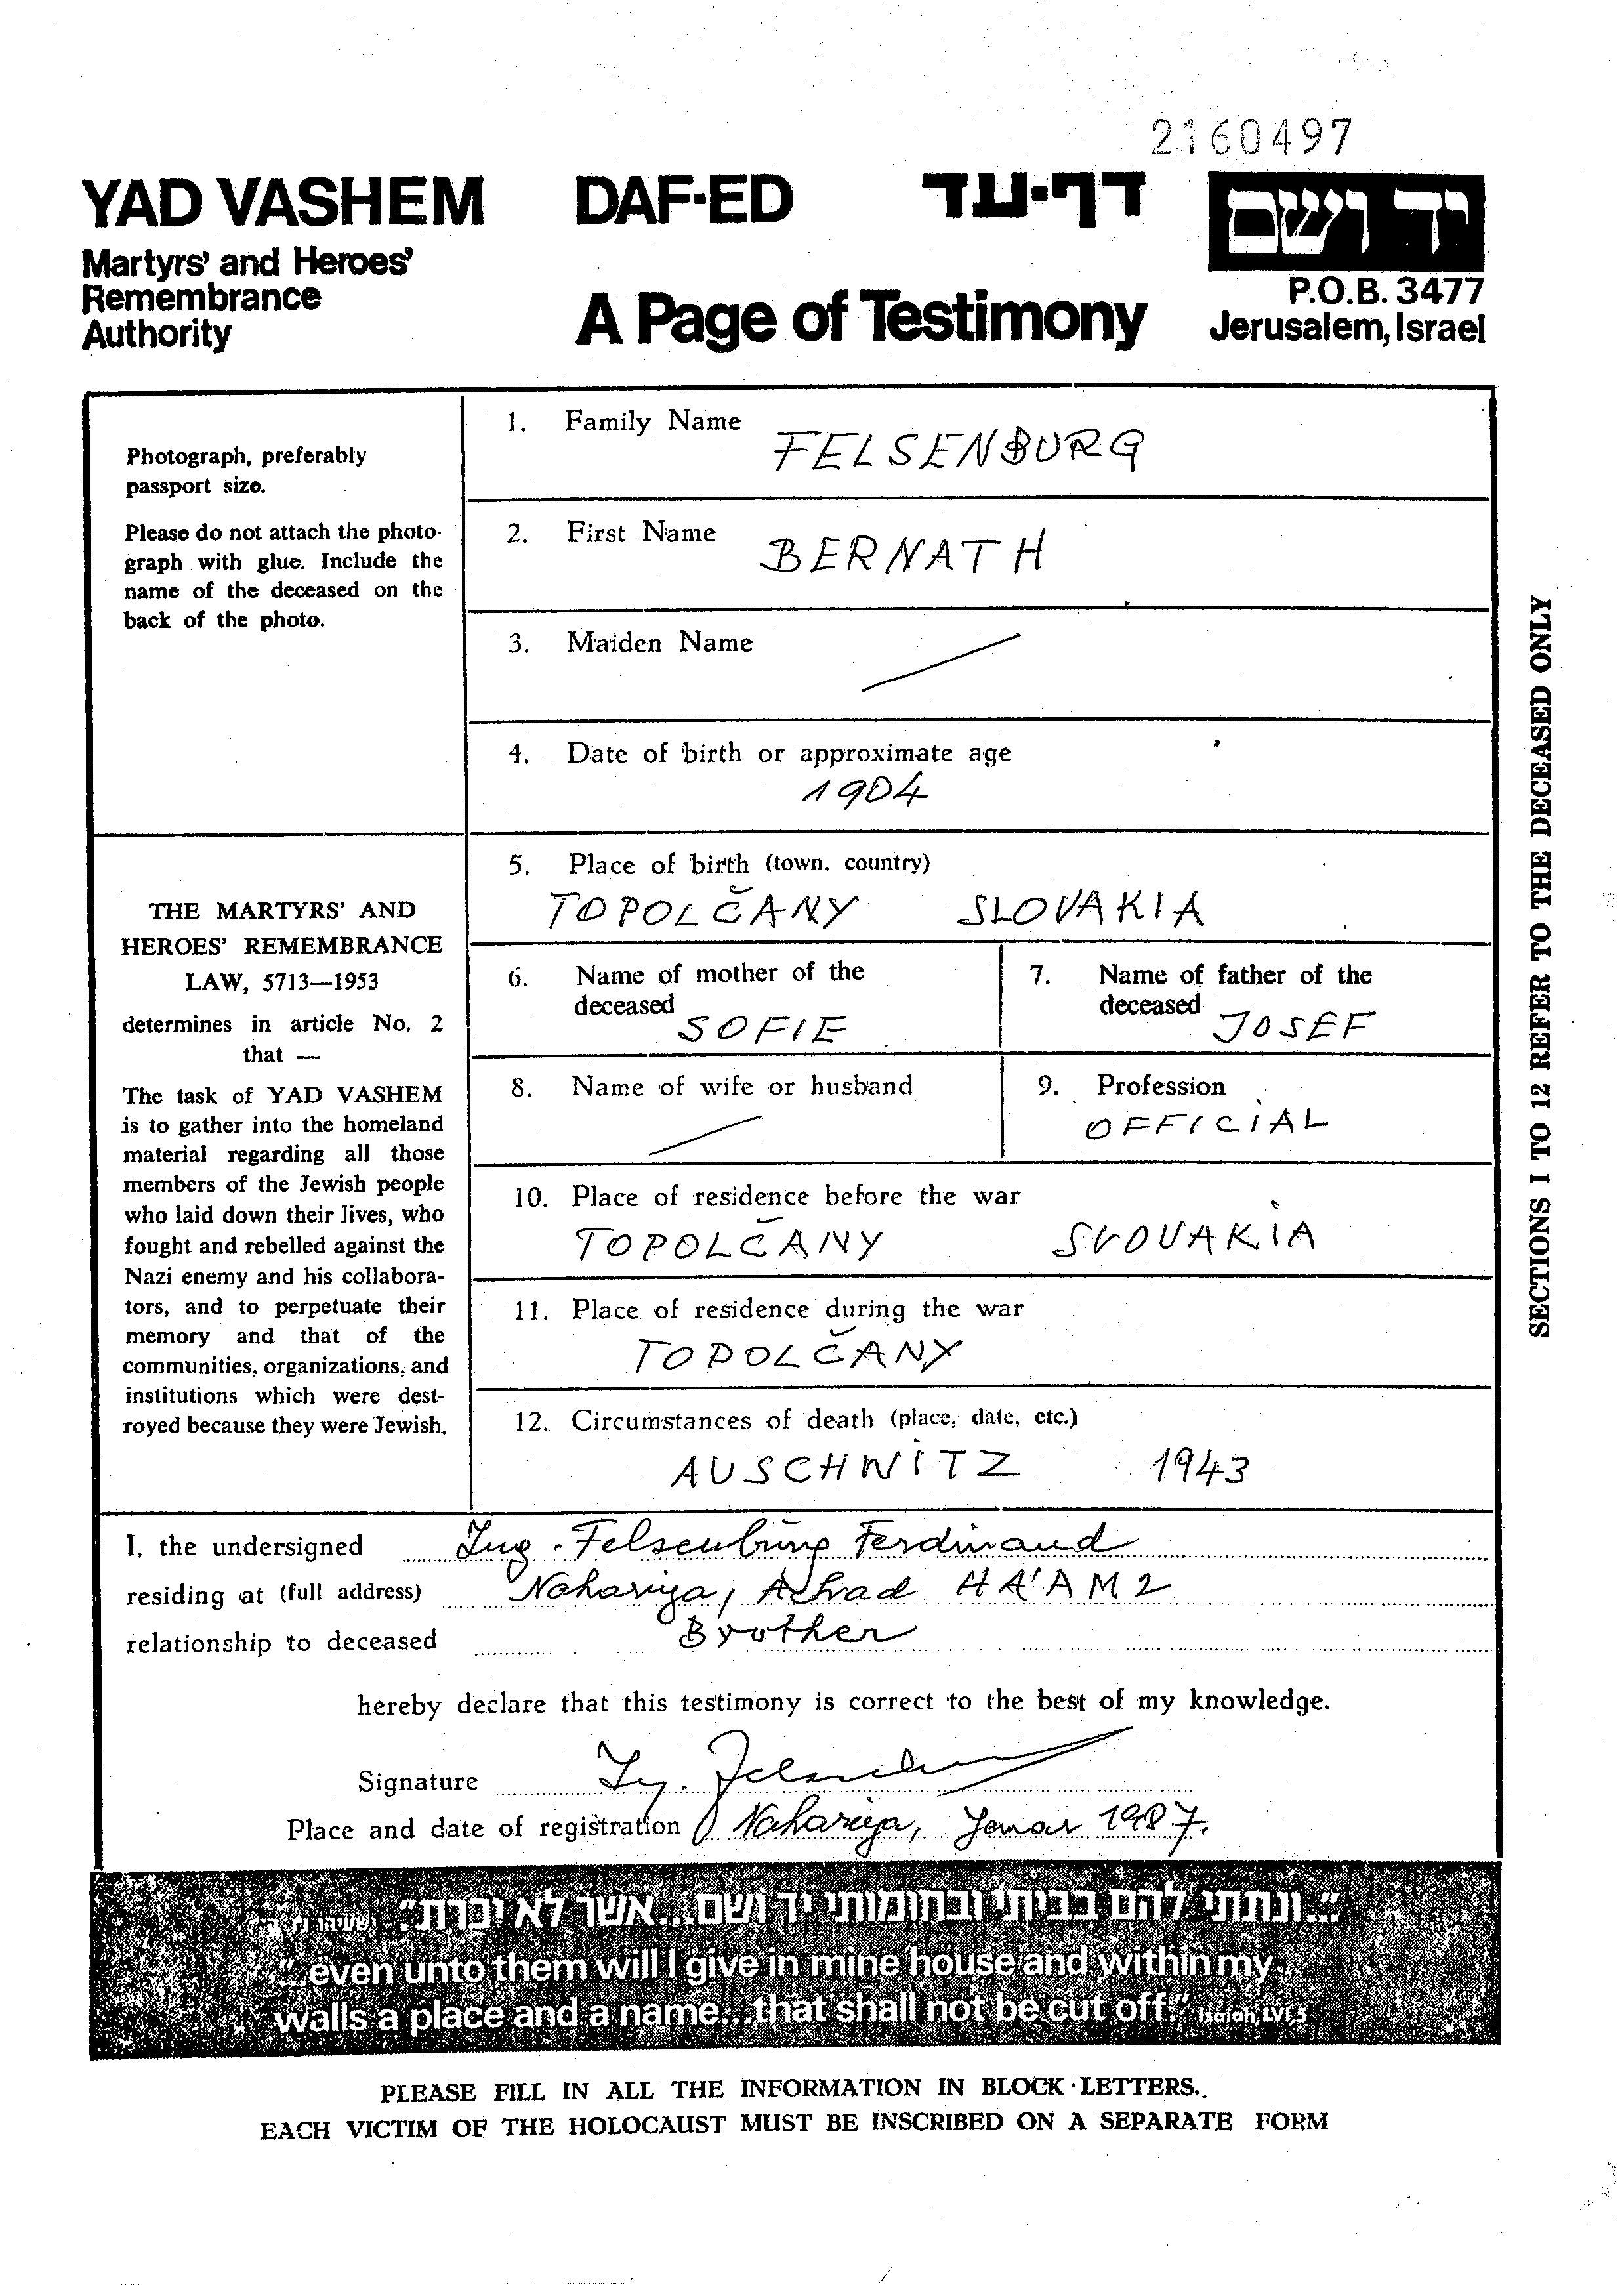 2160497
YAD VASHEM DAF-ED דף-עד יד ושם
Martyrs' and Heroes'
Remembrance
Authority
A Page of Testimony
P.O.B. 3477
Jerusalem, Israel
Photograph, preferably
passport size.
Please do not attach the photo-
graph with glue. Include the
name of the deceased on the
back of the photo.
THE MARTYRS' AND
HEROES' REMEMBRANCE
LAW, 5713—1953
determines in article No. 2
that —
The task of YAD VASHEM
is to gather into the homeland
material regarding all those
members of the Jewish people
who laid down their lives, who
fought and rebelled against the
Nazi enemy and his collabora-
tors, and to perpetuate their
memory and that of the
communities, organizations, and
institutions which were dest-
royed because they were Jewish.
1. Family Name
FELSENBURG
2. First Name
BERNATH
3. Maiden Name
4. Date of birth or approximate age
1904
5. Place of birth (town, country)
TOPOLČANY SLOVAKIA
6. Name of mother of the
deceased
SOFIE
7. Name of father of the
deceased
JOSEF
8. Name of wife or husband
9. Profession
OFFICIAL
10. Place of residence before the war
TOPOLČANY SLOVAKIA
11. Place of residence during the war
TOPOLČANY
12. Circumstances of death (place, date, etc.)
AUSCHWITZ 1943
SECTIONS 1 TO 12 REFER TO THE DECEASED ONLY
I, the undersigned Ing. Felsenburg Ferdinand
residing at (full address) Nahariya, Achad HA'AM 2
relationship to deceased Brother
hereby declare that this testimony is correct to the best of my knowledge.
Signature
Place and date of registration Nahariya, Januar 1987.
"...ונתתי להם בביתי ובחומותי יד ושם...אשר לא יכרת"
"...even unto them will I give in mine house and within my
walls a place and a name...that shall not be cut off." Isaiah, LVI,5
PLEASE FILL IN ALL THE INFORMATION IN BLOCK LETTERS.
EACH VICTIM OF THE HOLOCAUST MUST BE INSCRIBED ON A SEPARATE FORM